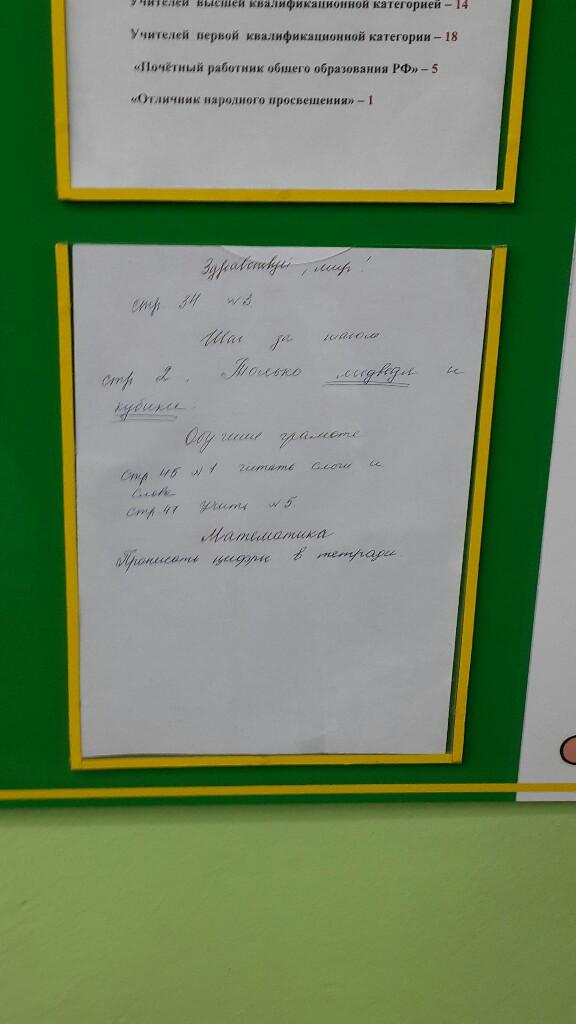 Учителей высшей квалификационной категорией – 14
Учителей первой квалификационной категории – 18
«Почётный работник общего образования РФ» – 5
«Отличник народного просвещения» – 1
Здравствуй, мир!
стр. 34 №3
Шаг за шагом
стр 2. Только медведи и
кубики.
Обучение грамоте
стр. 46 №1 читать слоги и
слова
стр. 47 учить №5.
Математика
Прописать цифры в тетради